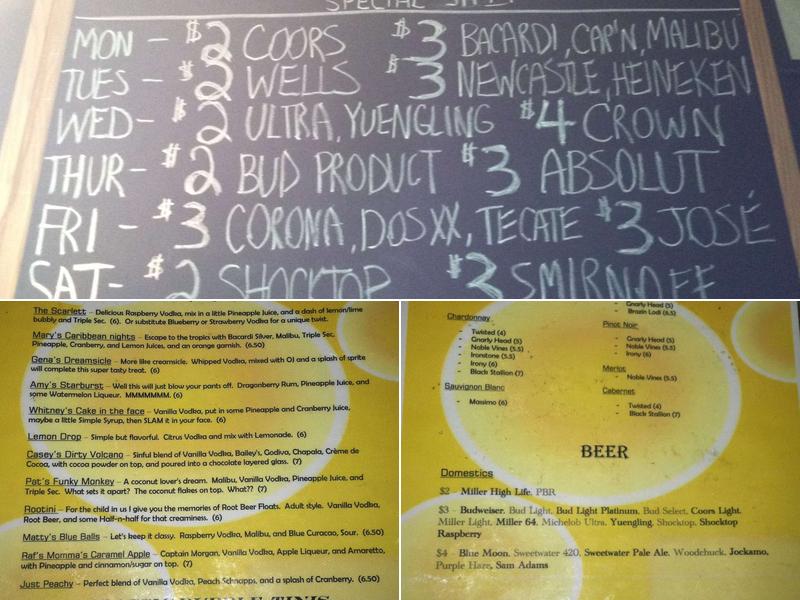 SPECIAL
MON - $2 COORS $3 BACARDI, CAP'N, MALIBU
TUES - $2 WELLS $3 NEWCASTLE, HEINEKEN
WED- $2 ULTRA, YUENGLING $4 CROWN
THUR- $2 BUD PRODUCT $3 ABSOLUT
FRI - $3 CORONA, DOS XX, TECATE $3 JOSÉ
SAT- $2 SHOCKTOP $3 SMIRNOFF
The Scarlett - Delicious Raspberry Vodka, mix in a little Pineapple Juice, and a dash of lemon/lime
bubbly and Triple Sec. (6). Or substitute Blueberry or Strawberry Vodka for a unique twist.
Mary's Caribbean nights - Escape to the tropics with Bacardi Silver, Malibu, Triple Sec,
Pineapple, Cranberry, and Lemon Juices, and an orange garnish. (6.50)
Gena's Dreamsicle - More like creamsicle. Whipped Vodka, mixed with OJ and a splash of sprite
will complete this super tasty treat. (6)
Amy's Starburst - Well this will just blow your pants off. Dragonberry Rum, Pineapple Juice, and
some Watermelon Liqueur. MMMMMMM. (6)
Whitney's Cake in the face - Vanilla Vodka, put in some Pineapple and Cranberry Juice,
maybe a little Simple Syrup, then SLAM it in your face. (6)
Lemon Drop - Simple but flavorful. Citrus Vodka and mix with Lemonade. (6)
Casey's Dirty Volcano - Sinful blend of Vanilla Vodka, Bailey's, Godiva, Chapala, Crème de
Cocoa, with cocoa powder on top, and poured into a chocolate layered glass. (7)
Pat's Funky Monkey - A coconut lover's dream. Malibu, Vanilla Vodka, Pineapple Juice, and
Triple Sec. What sets it apart? The coconut flakes on top. What?? (7)
Rootini - For the child in us I give you the memories of Root Beer Floats. Adult style. Vanilla Vodka,
Root Beer, and some Half-n-half for that creaminess. (6)
Matty's Blue Balls - Let's keep it classy. Raspberry Vodka, Malibu, and Blue Curacao, Sour. (6.50)
Raf's Momma's Caramel Apple - Captain Morgan, Vanilla Vodka, Apple Liqueur, and Amaretto,
with Pineapple and cinnamon/sugar on top. (7)
Just Peachy - Perfect blend of Vanilla Vodka, Peach Schnapps, and a splash of Cranberry. (6.50)
Chardonnay
- Twisted (4)
- Gnarly Head (5)
- Noble Vines (5.5)
- Ironstone (5.5)
- Irony (6)
- Black Stallion (7)
Sauvignon Blanc
- Massimo (6)
- Gnarly Head (5)
- Brazin Lodi (6.5)
Pinot Noir
- Gnarly Head (5)
- Noble Vines (5.5)
- Irony (6)
Merlot
- Noble Vines (5.5)
Cabernet
- Twisted (4)
- Black Stallion (7)
BEER
Domestics
$2 - Miller High Life, PBR
$3 - Budweiser, Bud Light, Bud Light Platinum, Bud Select, Coors Light,
Miller Light, Miller 64, Michelob Ultra, Yuengling, Shocktop, Shocktop
Raspberry
$4 - Blue Moon, Sweetwater 420, Sweetwater Pale Ale, Woodchuck, Jockamo,
Purple Haze, Sam Adams